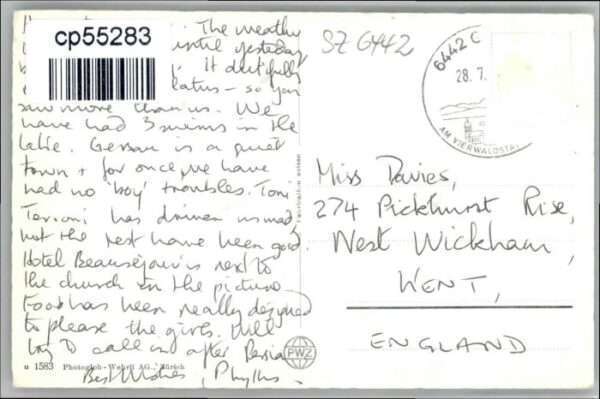 The weather
cp55283
until yesterday
it dutifully
Pilatus - so you
saw more than us. We
have had 3 swims in the
lake. Gersau is a quiet
town + for once we have
had no 'boy' troubles. Toni
has driven us mad,
but the rest have been good.
Hotel Beauséjour is next to
the church in the picture
Food has been really designed
to please the girls. Will
try to call in after Persia
Best Wishes, Phyllis.
u 1583 Photoglob-Wehrli AG., Zürich
PWZ
SZ 6442
6442 G
28.7.
AM VIERWALDSTÄT
Miss Davies,
274 Pickhurst Rise,
West Wickham,
KENT,
ENGLAND